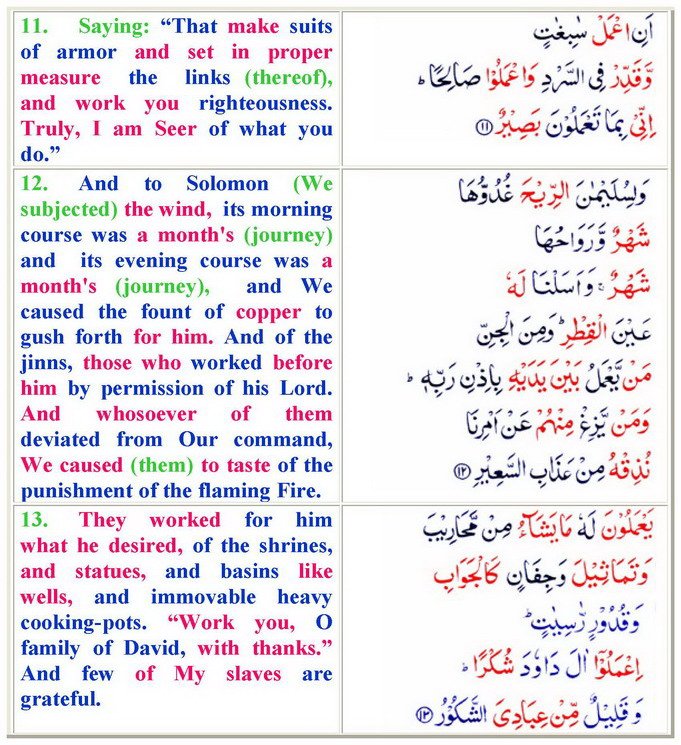 11. Saying: “That make suits
of armor and set in proper
measure the links (thereof),
and work you righteousness.
Truly, I am Seer of what you
do.”
اَنِ اعْمَلْ سٰبِغٰتٍ
وَّقَدِّرْ فِی السَّرْدِ وَاعْمَلُوْا صَالِحًا ؕ
اِنِّیْ بِمَا تَعْمَلُوْنَ بَصِیْرٌ ﴿۱۱﴾
12. And to Solomon (We
subjected) the wind, its morning
course was a month's (journey)
and its evening course was a
month's (journey), and We
caused the fount of copper to
gush forth for him. And of the
jinns, those who worked before
him by permission of his Lord.
And whosoever of them
deviated from Our command,
We caused (them) to taste of the
punishment of the flaming Fire.
وَلِسُلَیْمٰنَ الرِّیْحَ غُدُوُّهَا
شَهْرٌ وَّرَوَاحُهَا
شَهْرٌ ۚ وَاَسَلْنَا لَهٗ
عَیْنَ الْقِطْرِ ؕ وَمِنَ الْجِنِّ
مَنْ یَّعْمَلُ بَیْنَ یَدَیْهِ بِاِذْنِ رَبِّهٖ ؕ
وَمَنْ یَّزِغْ مِنْهُمْ عَنْ اَمْرِنَا
نُذِقْهُ مِنْ عَذَابِ السَّعِیْرِ ﴿۱۲﴾
13. They worked for him
what he desired, of the shrines,
and statues, and basins like
wells, and immovable heavy
cooking-pots. “Work you, O
family of David, with thanks.”
And few of My slaves are
grateful.
یَعْمَلُوْنَ لَهٗ مَا یَشَآءُ مِنْ مَّحَارِیْبَ
وَتَمَاثِیْلَ وَجِفَانٍ كَالْجَوَابِ
وَقُدُوْرٍ رّٰسِیٰتٍ ؕ
اِعْمَلُوْۤا اٰلَ دَاوٗدَ شُكْرًا ؕ
وَقَلِیْلٌ مِّنْ عِبَادِیَ الشَّكُوْرُ ﴿۱۳﴾